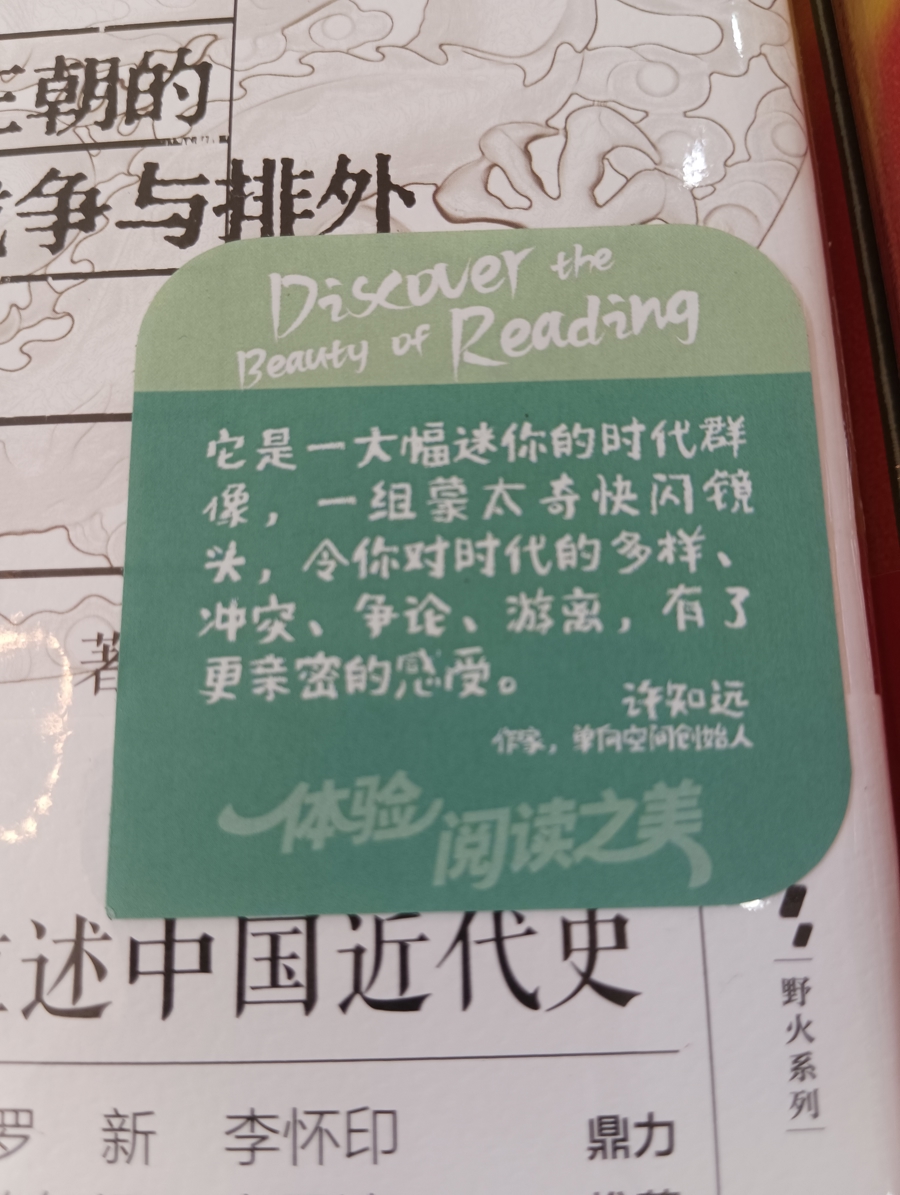 王朝的
战争与排外
Discover the
Beauty of Reading
它是一大幅迷你的时代群
像，一组蒙太奇快闪镜
头，令你对时代的多样、
冲突、争论、游离，有了
更亲密的感受。
许知远
作家，单向空间创始人
体验
阅读之美
著
述中国近代史
野火系列
罗 新 李怀印 鼎力